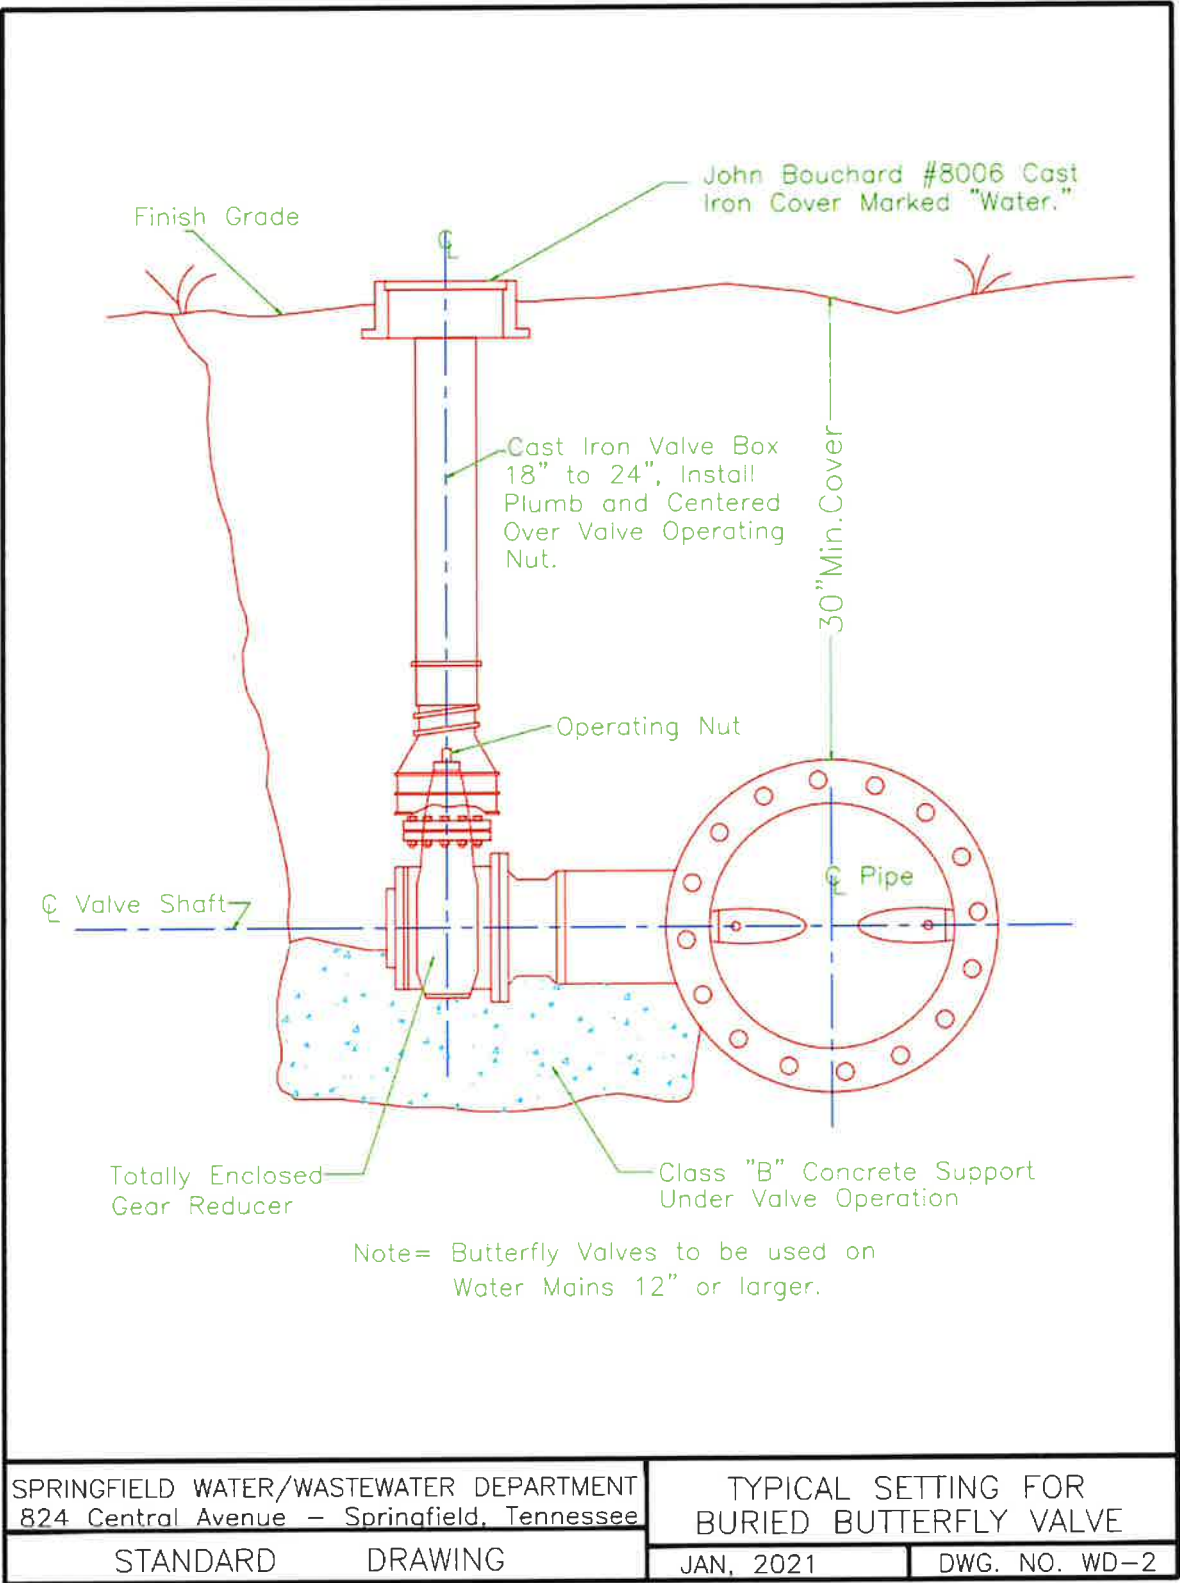 John Bouchard #8006 Cast
Iron Cover Marked "Water."
Finish Grade
℄
Cast Iron Valve Box
18" to 24", Install
Plumb and Centered
Over Valve Operating
Nut.
30" Min. Cover
Operating Nut
℄ Pipe
℄ Valve Shaft
Totally Enclosed
Gear Reducer
Class "B" Concrete Support
Under Valve Operation
Note= Butterfly Valves to be used on
Water Mains 12" or larger.
SPRINGFIELD WATER/WASTEWATER DEPARTMENT
824 Central Avenue – Springfield, Tennessee
STANDARD DRAWING
TYPICAL SETTING FOR
BURIED BUTTERFLY VALVE
JAN, 2021
DWG. NO. WD-2